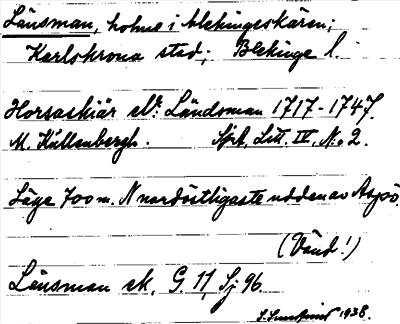 Länsman, holme i blekingeskären;
Karlskrona stad; Blekinge l.
Horsaskiär elr Ländsman 1717-1747.
M. Kullenbergh. Sjrk. Litt. IV, No 2.
Läge 700 m. N nordöstligaste udden av Aspö.
(Vänd!)
Länsman sk. G. 11, Sj 96.
1938.